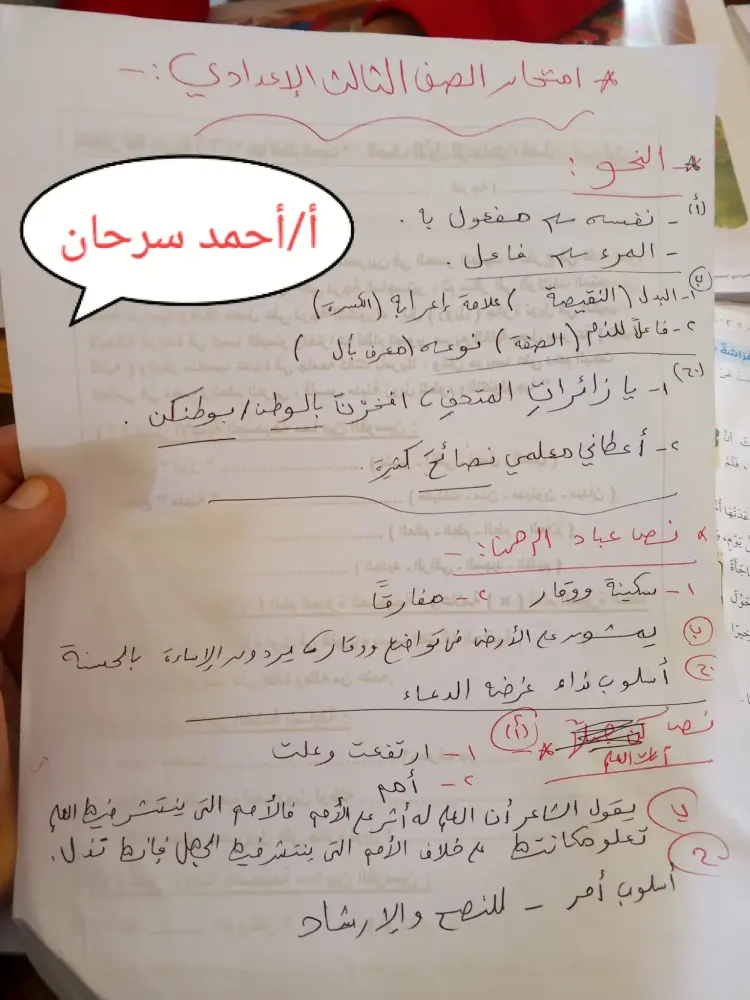 * امتحان الصف الثالث الإعدادي :-
* النحو :
أ/أحمد سرحان
(أ) - نفسه مفعول به .
- المرء فاعل .
(ب) ١- البدل (النقيصة) علامة إعرابه (الكسرة)
٢- فاعلاً للذم (الصفة) نوعه (معرف بأل)
(ج) ١- يا زائراتِ المتحفِ، افخرْنَ بالوطن/بوطنكن .
٢- أعطاني معلمي نصائحَ كثيرة.
* نص عباد الرحمن :-
١- سكينة ووقار ٢- مفارقًا
(ب) يمشون على الأرض في تواضع ووقار كما يردون الإساءة بالحسنة
(ج) أسلوب نداء غرضه الدعاء
نص
آيات العلم
* (أ) ١- ارتفعت وعلت
٢- أمم
(ب) يقول الشاعر أن العلم له أثر على الأمم فالأمم التى ينتشر فيها العلم
تعلو مكانتها على خلاف الأمم التى ينتشر فيها الجهل فإنها تذل.
(ج) أسلوب أمر - للنصح والإرشاد